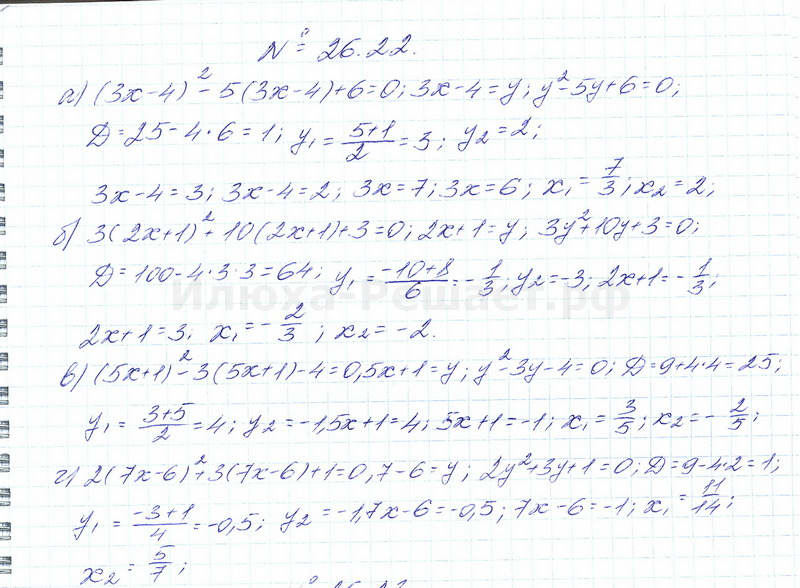 № 26.22.
а) (3x-4)² - 5(3x-4)+6=0; 3x-4=y; y²-5y+6=0;
Д=25-4·6=1; y₁=(5+1)/2=3; y₂=2;
3x-4=3; 3x-4=2; 3x=7; 3x=6; x₁=7/3; x₂=2;
б) 3(2x+1)²+10(2x+1)+3=0; 2x+1=y; 3y²+10y+3=0;
Д=100-4·3·3=64; y₁=(-10+8)/6=-1/3; y₂=-3; 2x+1=-1/3;
Илюха-Решает.рф
2x+1=3; x₁=-2/3; x₂=-2.
в) (5x+1)²-3(5x+1)-4=0, 5x+1=y; y²-3y-4=0; Д=9+4·4=25;
y₁=(3+5)/2=4; y₂=-1, 5x+1=4; 5x+1=-1; x₁=3/5; x₂=-2/5;
г) 2(7x-6)²+3(7x-6)+1=0, 7-6=y; 2y²+3y+1=0; Д=9-4·2=1;
y₁=(-3+1)/4=-0,5; y₂=-1, 7x-6=-0,5; 7x-6=-1; x₁=11/14;
x₂=5/7;